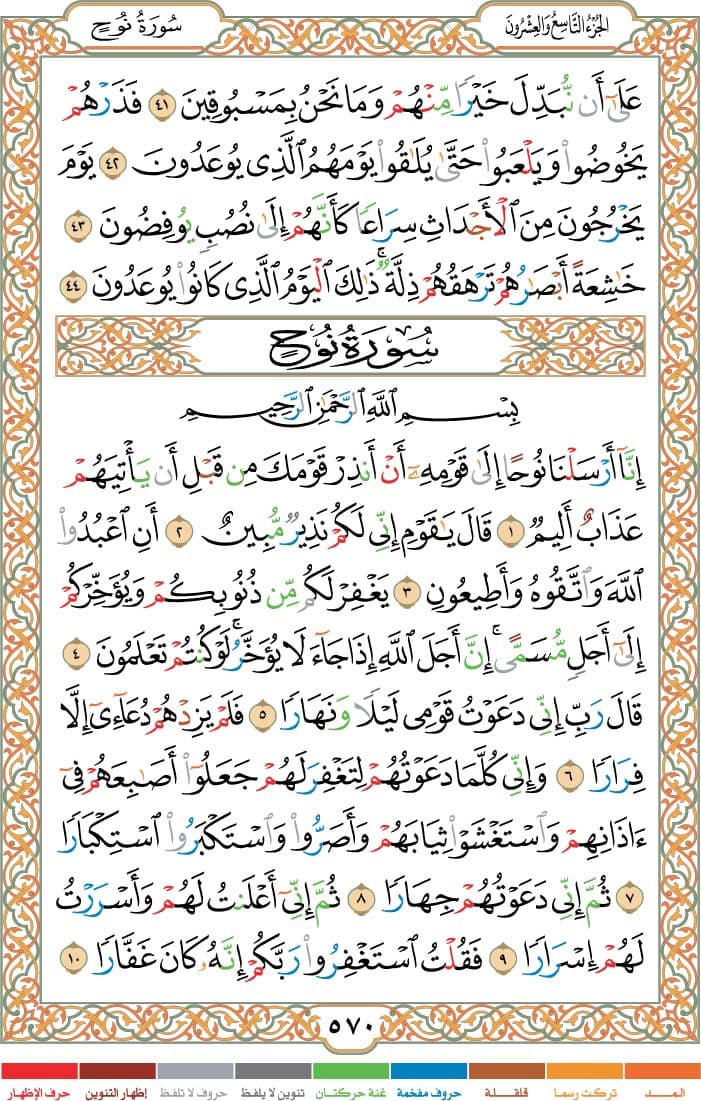 الجزء التاسع والعشرون
سورة نوح
عَلَىٰٓ أَن نُّبَدِّلَ خَيْرًا مِّنْهُمْ وَمَا نَحْنُ بِمَسْبُوقِينَ ٤١ فَذَرْهُمْ
يَخُوضُوا۟ وَيَلْعَبُوا۟ حَتَّىٰ يُلَٰقُوا۟ يَوْمَهُمُ ٱلَّذِى يُوعَدُونَ ٤٢ يَوْمَ
يَخْرُجُونَ مِنَ ٱلْأَجْدَاثِ سِرَاعًا كَأَنَّهُمْ إِلَىٰ نُصُبٍ يُوفِضُونَ ٤٣
خَٰشِعَةً أَبْصَٰرُهُمْ تَرْهَقُهُمْ ذِلَّةٌ ۚ ذَٰلِكَ ٱلْيَوْمُ ٱلَّذِى كَانُوا۟ يُوعَدُونَ ٤٤
سُورَةُ نُوحٍ
بِسْمِ ٱللَّهِ ٱلرَّحْمَٰنِ ٱلرَّحِيمِ
إِنَّآ أَرْسَلْنَا نُوحًا إِلَىٰ قَوْمِهِۦٓ أَنْ أَنذِرْ قَوْمَكَ مِن قَبْلِ أَن يَأْتِيَهُمْ
عَذَابٌ أَلِيمٌ ١ قَالَ يَٰقَوْمِ إِنِّى لَكُمْ نَذِيرٌ مُّبِينٌ ٢ أَنِ ٱعْبُدُوا۟
ٱللَّهَ وَٱتَّقُوهُ وَأَطِيعُونِ ٣ يَغْفِرْ لَكُم مِّن ذُنُوبِكُمْ وَيُؤَخِّرْكُمْ
إِلَىٰٓ أَجَلٍ مُّسَمًّى ۚ إِنَّ أَجَلَ ٱللَّهِ إِذَا جَآءَ لَا يُؤَخَّرُ ۖ لَوْ كُنتُمْ تَعْلَمُونَ ٤
قَالَ رَبِّ إِنِّى دَعَوْتُ قَوْمِى لَيْلًا وَنَهَارًا ٥ فَلَمْ يَزِدْهُمْ دُعَآءِىٓ إِلَّا
فِرَارًا ٦ وَإِنِّى كُلَّمَا دَعَوْتُهُمْ لِتَغْفِرَ لَهُمْ جَعَلُوٓا۟ أَصَٰبِعَهُمْ فِىٓ
ءَاذَانِهِمْ وَٱسْتَغْشَوْا۟ ثِيَابَهُمْ وَأَصَرُّوا۟ وَٱسْتَكْبَرُوا۟ ٱسْتِكْبَارًا
٧ ثُمَّ إِنِّى دَعَوْتُهُمْ جِهَارًا ٨ ثُمَّ إِنِّىٓ أَعْلَنتُ لَهُمْ وَأَسْرَرْتُ
لَهُمْ إِسْرَارًا ٩ فَقُلْتُ ٱسْتَغْفِرُوا۟ رَبَّكُمْ إِنَّهُۥ كَانَ غَفَّارًا ١٠
٥٧٠
المـــد تركت رسما قلقلة حروف مفخمة غنة حركتان تنوين لا يلفظ حروف لا تلفظ إظهار التنوين حرف الإظهار